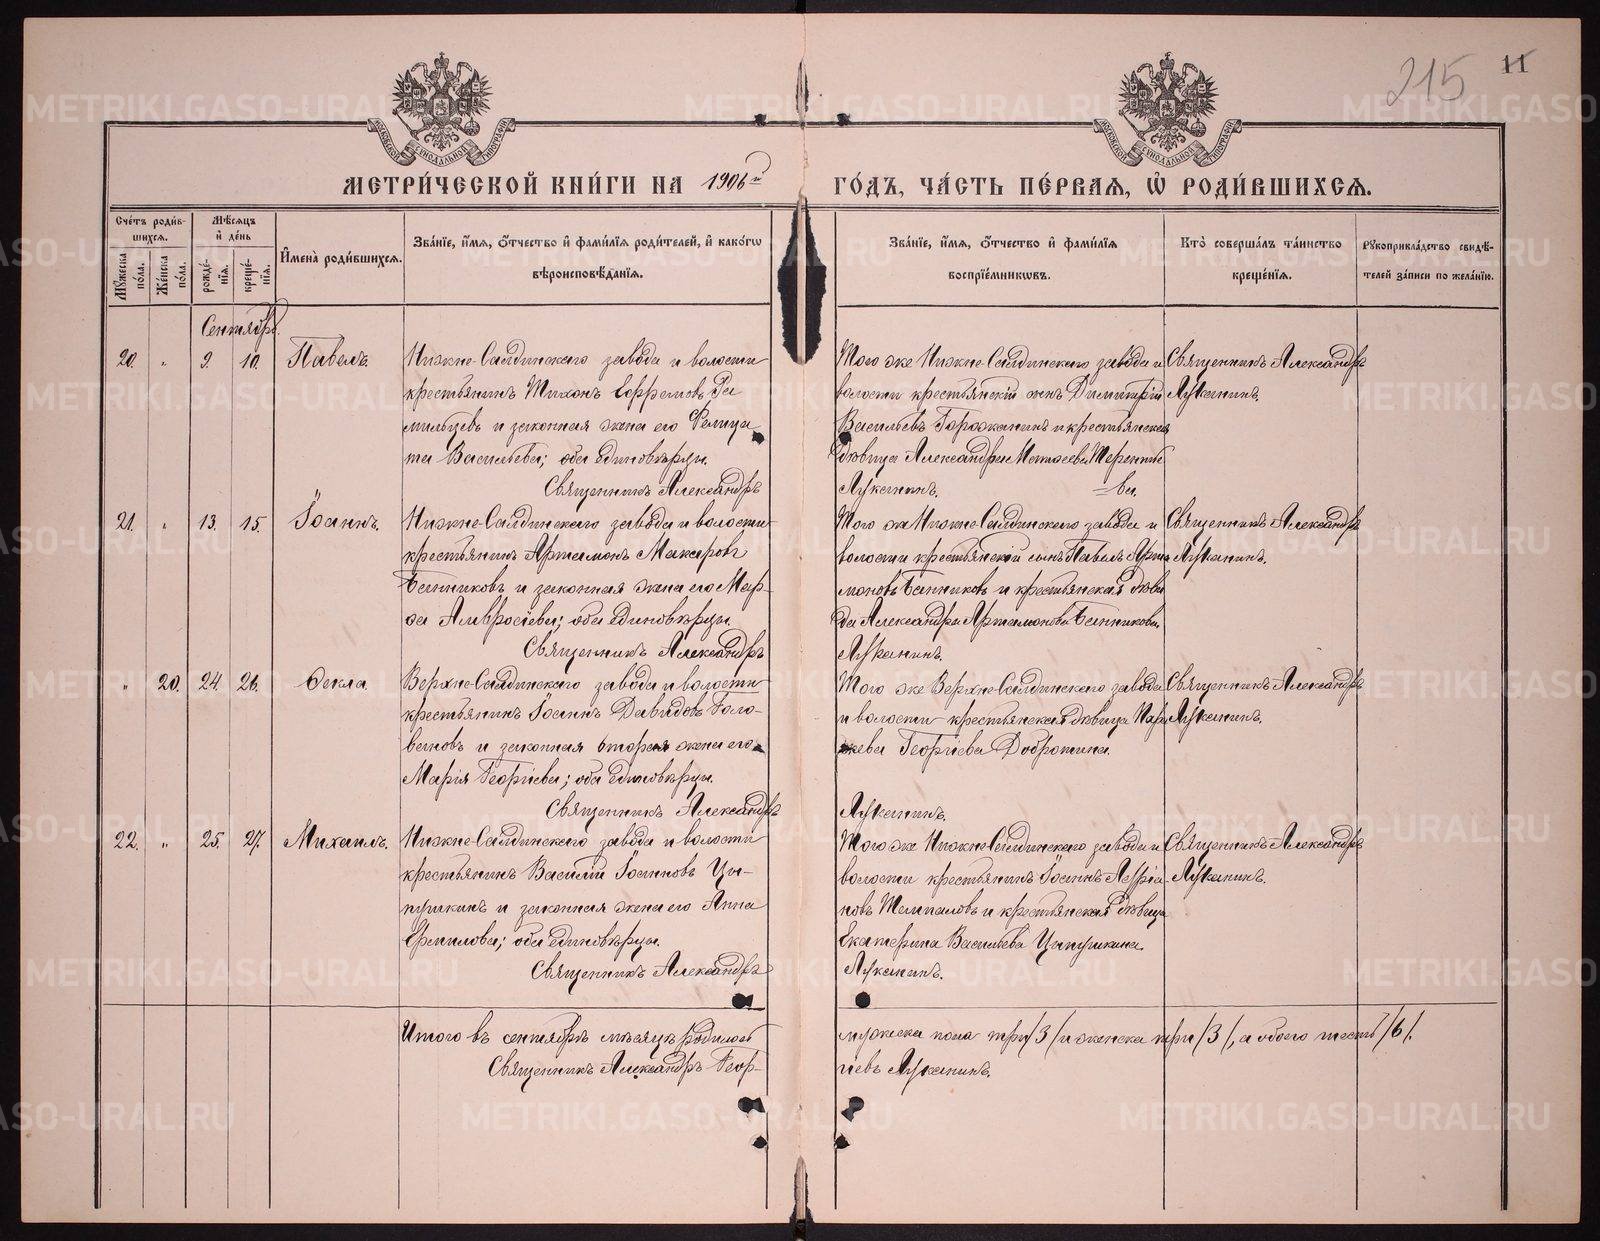 215 11
МЕТРИ́ЧЕСКОЙ КНИ́ГИ НА 1906й ГО́ДЪ, ЧА́СТЬ ПЕ́РВАѦ, Ѡ҆ РОДИ́ВШИХСѦ.
Сче́тъ роди́вшихсѧ.
Мꙋ́жеска по́ла.
Же́нска по́ла.
Мѣ́сѧцъ и҆ де́нь
рожде́нїѧ.
креще́нїѧ.
И҆мена̀ роди́вшихсѧ.
Зва́нїе, и҆́мѧ, ѻ҆́тчество и҆ фами́лїѧ роди́телей, и҆ како́гѡ
вѣроисповѣ́данїѧ.
Зва́нїе, и҆́мѧ, ѻ҆́тчество и҆ фами́лїѧ
воспрїе́мникѡвъ.
Кто̀ соверша́лъ та́инство
креще́нїѧ.
Рꙋкоприкла́дство свидѣ́-
телей за́писи по жела́нїю.
Сентябрь.
20. „ 9. 10. Павелъ.
Нижне-Салдинскаго завода и волости
крестьянинъ Тихонъ Ефремовъ Га
мильцевъ и законная жена его Фелица
та Васильева; оба единовѣрцы.
Священникъ Александръ
Того же Нижне-Салдинскаго завода и
волости крестьянскій сынъ Димитрій
Васильевъ Горожанинъ и крестьянская
дѣвица Александра Матѳеева Терентье
Луканинъ. =ва.
Священникъ Александръ
Луканинъ.
21. „ 13. 15. Іоаннъ.
Нижне-Салдинскаго завода и волости
крестьянинъ Артамонъ Макаровъ
Банниковъ и законная жена его Мар-
ѳа Амвросіева; оба единовѣрцы.
Священникъ Александръ
Того же Нижне-Салдинскаго завода и
волости крестьянскій сынъ Павелъ Арта
моновъ Банниковъ и крестьянская дѣви
ца Александра Артамонова Банникова.
Луканинъ.
Священникъ Александръ
Луканинъ.
„ 20. 24. 26. Ѳекла.
Верхне-Салдинскаго завода и волости
крестьянинъ Іоаннъ Давидовъ Голо-
вановъ и законная вторая жена его
Марія Георгіева; оба единовѣрцы.
Священникъ Александръ
Того же Верхне-Салдинскаго завода
и волости крестьянская дѣвица Пара
скева Георгіева Добротина.
Луканинъ.
Священникъ Александръ
Луканинъ.
22. „ 25. 27. Михаилъ.
Нижне-Салдинскаго завода и волости
крестьянинъ Василій Іоанновъ Цы-
пушкинъ и законная жена его Анна
Ермилова; оба единовѣрцы.
Священникъ Александръ
Того же Нижне-Салдинскаго завода и
волости крестьянинъ Іоаннъ
новъ и крестьянская дѣвица
Екатерина Васильева Цыпушкина.
Луканинъ.
Священникъ Александръ
Луканинъ.
Итого въ сентябрѣ мѣсяцѣ родилось мужеска пола три /3/ и женска три /3/, а обоего шесть /6/.
Священникъ Александръ Геор-
гіевъ Луканинъ.
METRIKI.GASO-URAL.RU